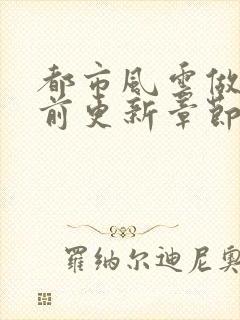 都市風雲做
前更新章節
羅納尔迪尼奥